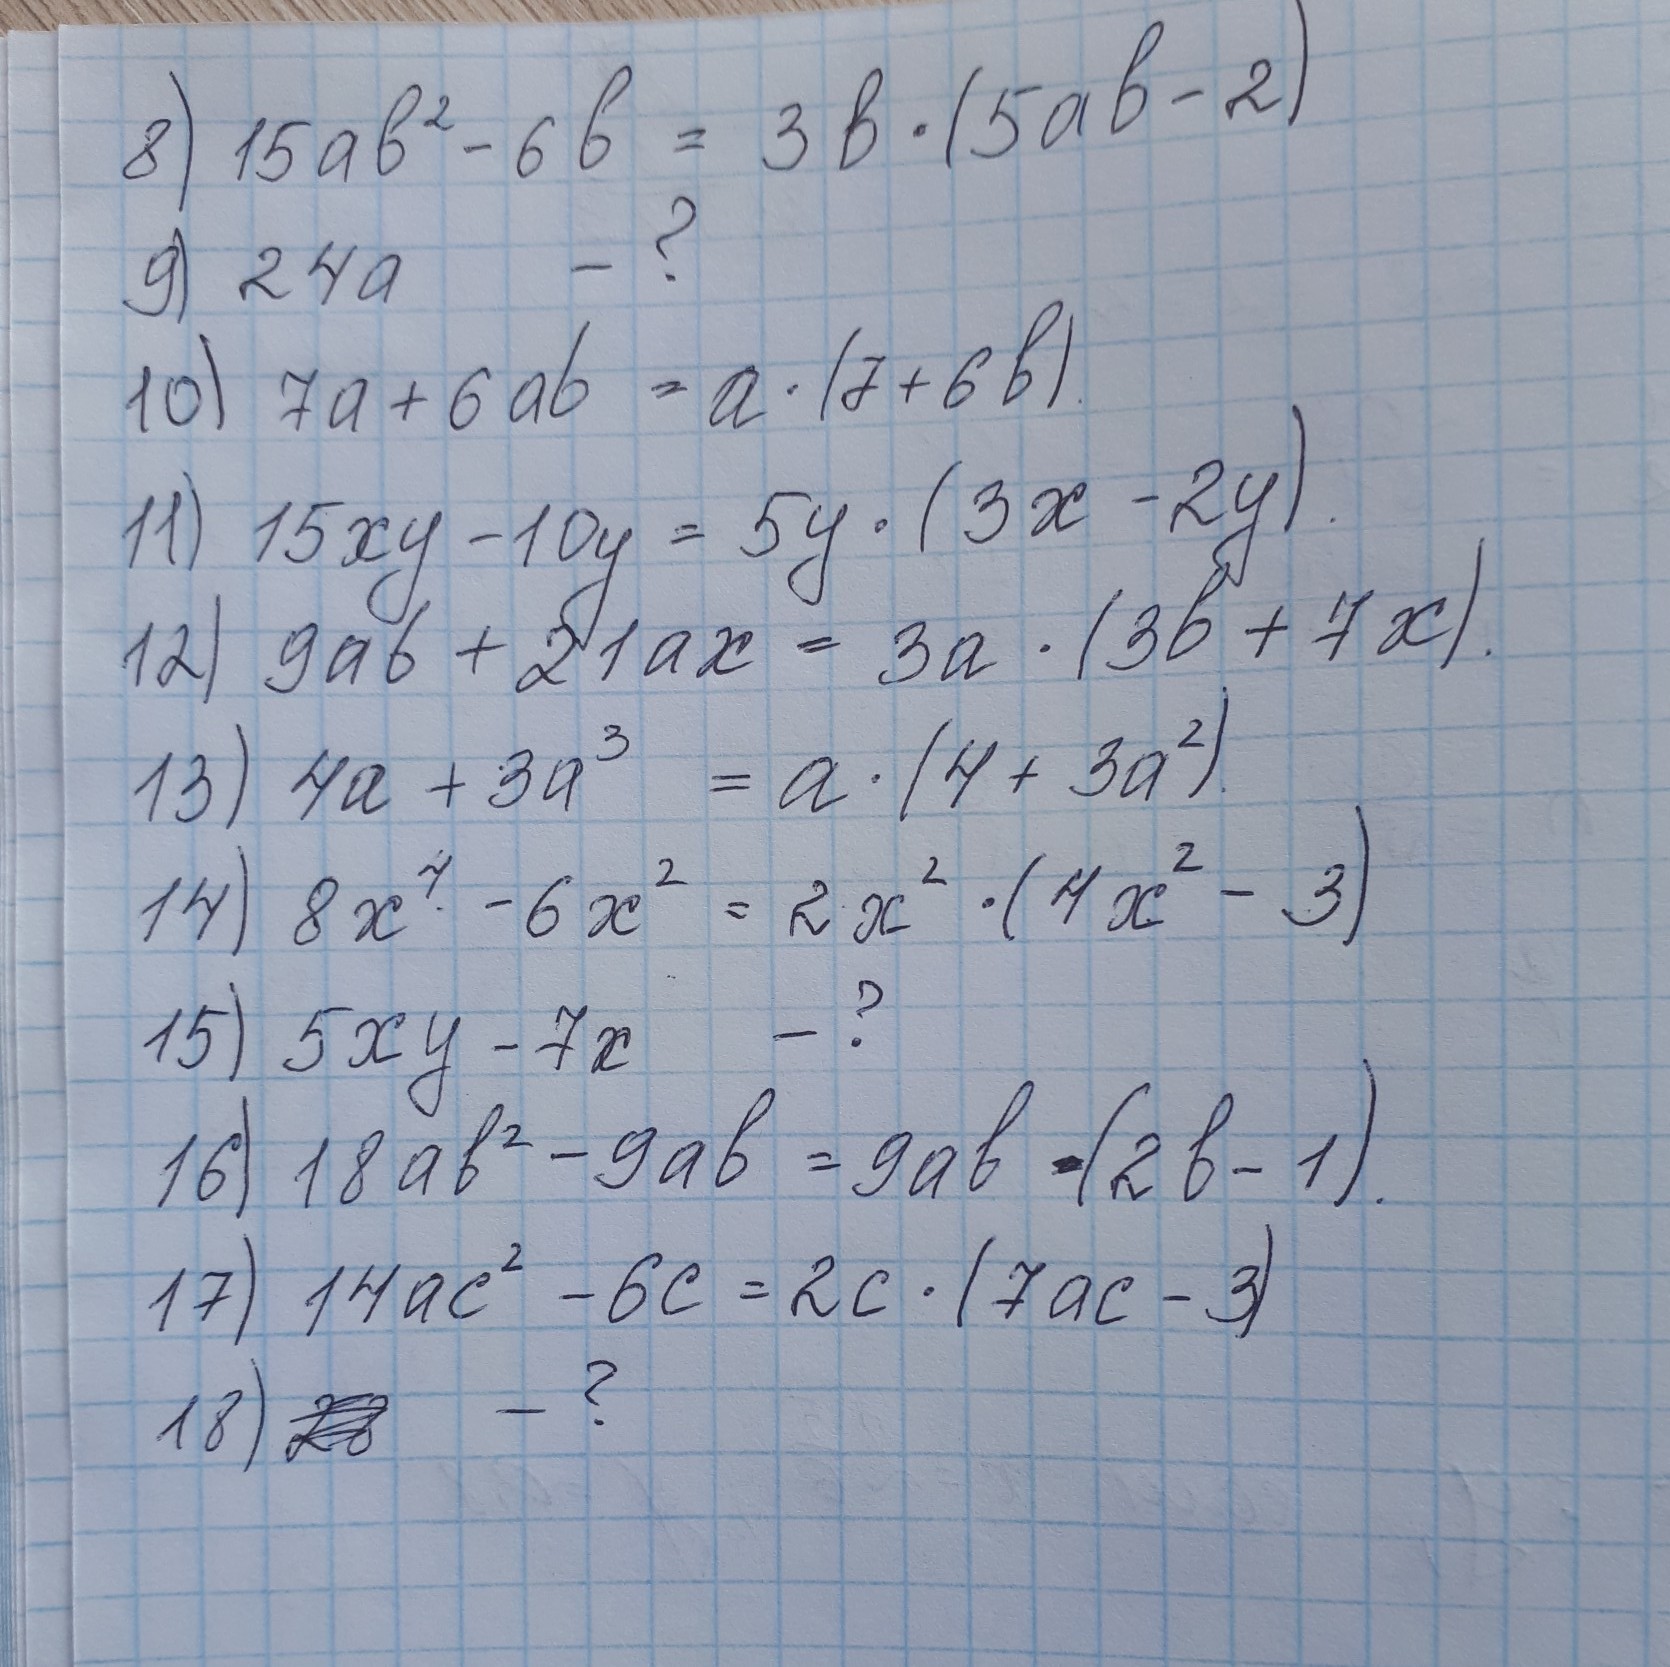 8) 15ab² - 6b = 3b · (5ab - 2)
9) 24a - ?
10) 7a + 6ab = a · (7 + 6b).
11) 15xy - 10y = 5y · (3x - 2y).
12) 9ab + 21ax = 3a · (3b + 7x).
13) 4a + 3a³ = a · (4 + 3a²).
14) 8x⁴ - 6x² = 2x² · (4x² - 3)
15) 5xy - 7x - ?
16) 18ab² - 9ab = 9ab · (2b - 1).
17) 14ac² - 6c = 2c · (7ac - 3)
18) - ?